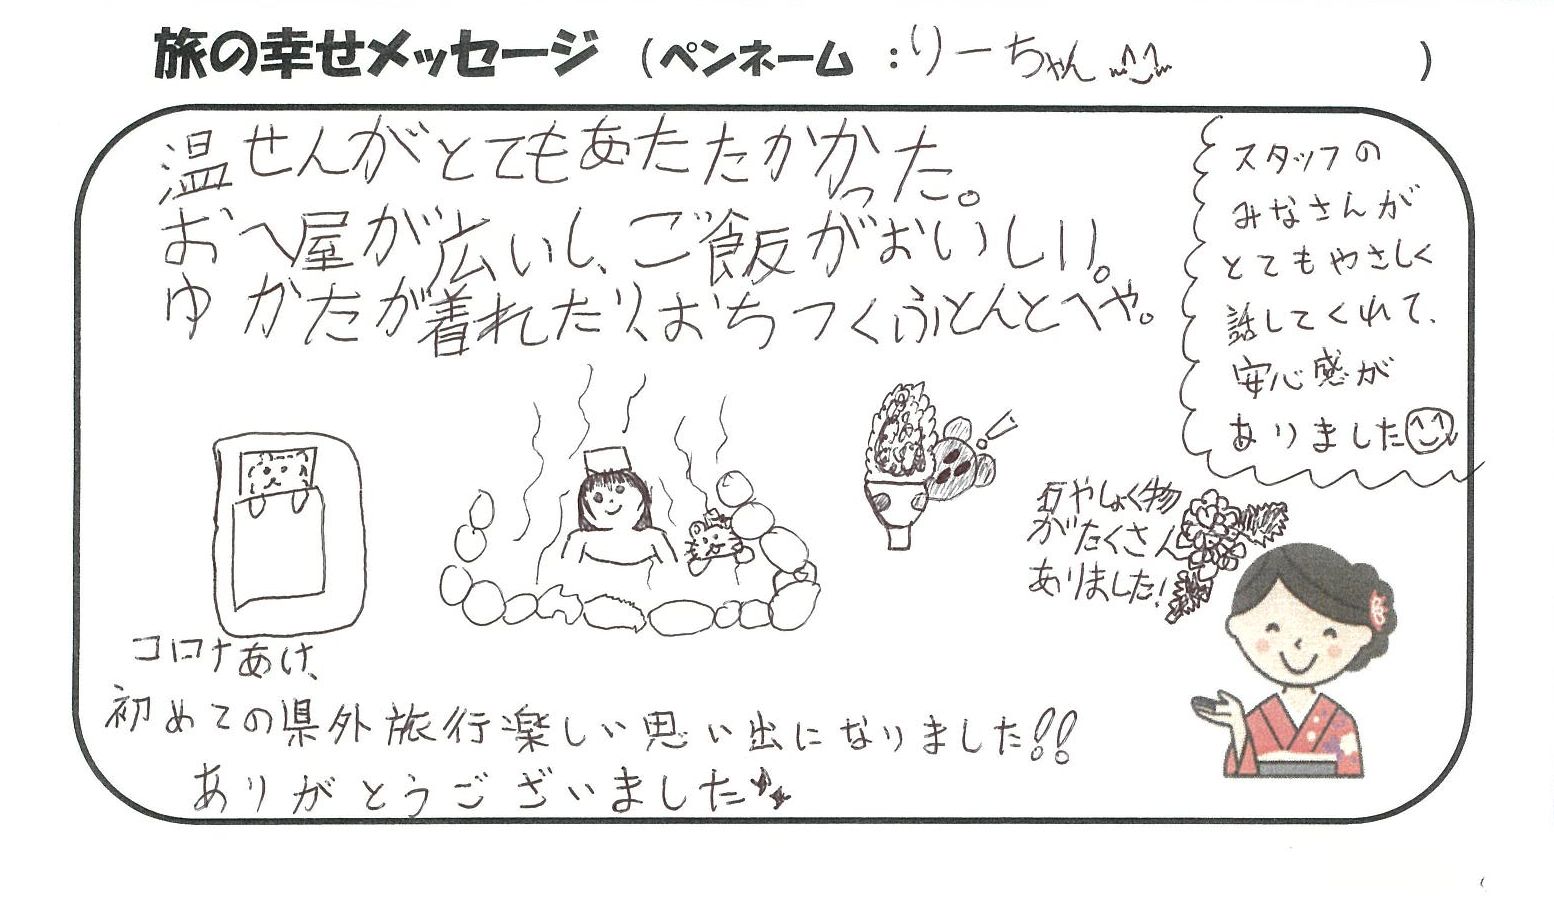 旅の幸せメッセージ (ペンネーム :りーちゃん )
温せんがとてもあたたかかった。
おへ屋が広いし、ご飯がおいしい。
ゆかたが着れたり、おちつくふとんとへや。
スタッフの
みなさんが
とてもやさしく
話してくれて、
安心感が
ありました
おやしょく物
がたくさん
ありました!
コロナあけ、
初めての県外旅行楽しい思い出になりました!!
ありがとうございました